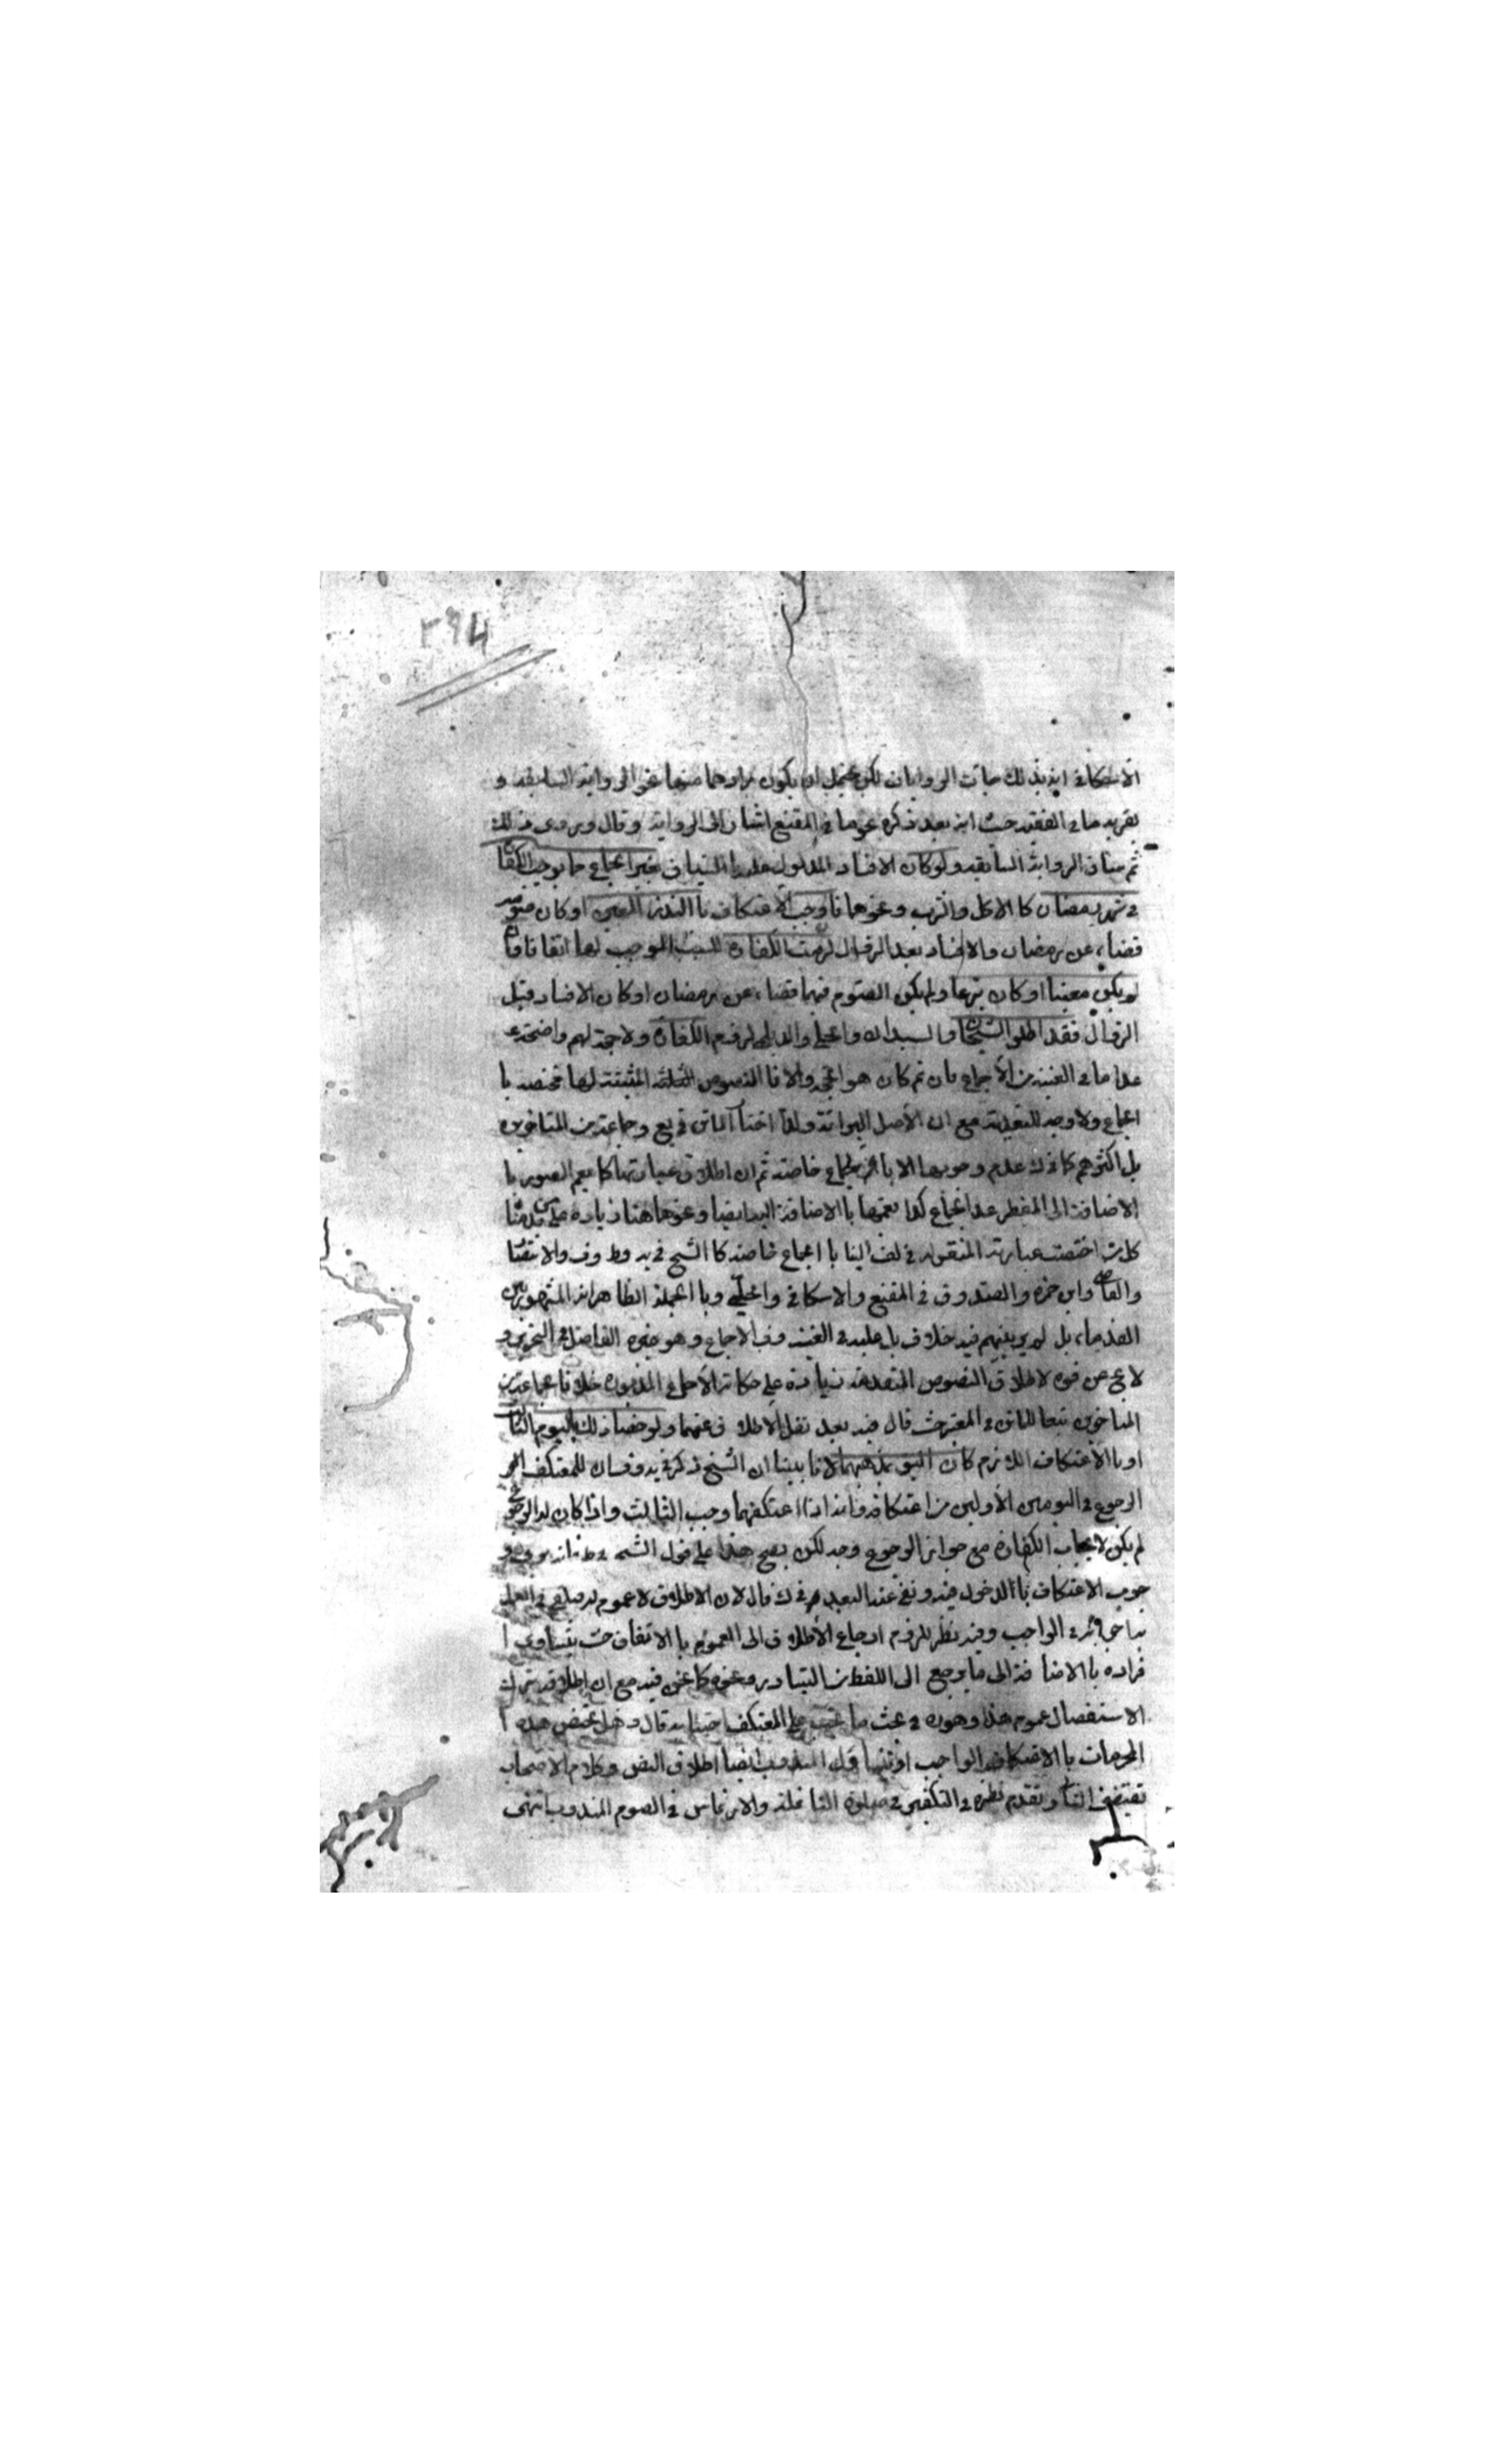 ٢٩٤
الاسكافي انه بذلك جائت الروايات لكن يحتمل ان يكون مرادهما منها نحو الرواية السابقة و
يقربه ما في الفقيه حيث انه بعد ذكره نحو ما في المقنع اشار الى الرواية وقال وبروى ذلك
ثم ساق الرواية السابقة ولو كان الافساد المدلول عليه بالسياق بغير الجماع مما يوجب الكفا
في شهر رمضان كالاكل والشرب ونحوهما فاوجب الاعتكاف باالنذر المعين او كان صومه
قضاء عن رمضان والافساد بعد الزوال لزمت الكفارة للسبب الموجب لها اتفاقا فان
لم يكن معينا او كان تبرعا ولم يكن الصوم فيهما قضاء عن رمضان او كان الافساد قبل
الزوال فقد اطلق الشيخان والسيدان والحلي والديلمي لزوم الكفارة ولا حجة لهم واضحة
عدا ما في الغنية من الاجماع فان تم كان هو الحجة والا فاالنصوص الثلثة المثبتة لها مختصة با
لجماع ولا وجه للتعدية مع ان الاصل البرائة ولذا اختار الماتن في يع وجماعة من المتاخرين
بل اكثرهم كما في ك عدم وجوبها الا باالجماع خاصة ثم ان اطلاق عبارتها كما يعم الصور با
الاضافة الى المفطر عدا الجماع كذا يعمها باالاضافة اليه ايضا ونحوها هنا زيادة على من قدمنا
كل من اختصت عبارته المنقولة في لف الينا باالجماع خاصة كاالشيخ في يه وط وف والانتصا
والقاضي وابن حمزة والصدوق في المقنع والاسكافي والحلي وباالجملة الظاهر انه المشهور بين
القدماء بل لم يربينهم فيه خلاف بل عليه في الغنية وف الاجماع وهو خيرة الفاضل في التحرير و
لا يخ عن قوة لاطلاق النصوص المتقدمة زيادة على حكاية الاجماع المذبورة خلافا لجماعة من
المتاخرين تبعا للماتن في المعتبر حيث قال فيه بعد نقل الاطلاق عنهما ولو خصا ذلك باليوم الثالث
او باالاعتكاف اللازم كان اليق بمذهبهما لانا بينا ان الشيخ ذكر في يه وف ان للمعتكف
الرجوع في اليومين الاولين من اعتكافه وانه اذا اعتكفهما وجب الثالث واذا كان له الرجوع
لم يكن لايجاب الكفارة مع جواز الرجوع وجه لكن يصح هذا على قول الشيخ في ط فانه يرى و
جوب الاعتكاف باالدخول فيه ونفى عنه البعد في ك قال لان الاطلاق لا عموم له فيكفي في العمل
به اجرائه في الواجب وفيه نظر للزوم ارجاع الاطلاق الى العموم باالاتفاق حيث يتساوى ا
فراده باالاضافة الى ما يرجع الى اللفظ من التبادر ونحوه كما نحن فيه مع ان اطلاقه بترك
الاستفصال عموم هذا وهو ره في بحث ما يجب على المعتكف اجتنابه قال وهل يختص هذه ا
المحرمات باالاعتكاف الواجب او يتناول المندوب ايضا اطلاق النص وكلام الاصحاب
تقتضي الثاني وتقدم نظيره في التكفير في صلوة النافلة والارتماس في الصوم المندوب انتهى